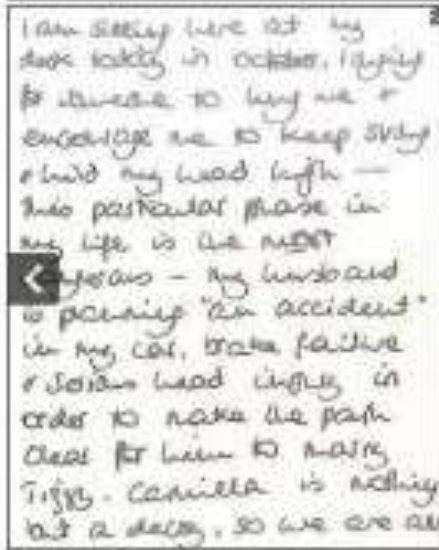 I am sitting here at my
desk today in october, longing
for someone to hug me &
encourage me to keep strong
& hold my head high —
this particular phase in
my life is the most
— my husband
is planning "an accident"
in my car, brake failure
& serious head injury in
order to make the path
clear for him to marry
Tiggy. Camilla is nothing
but a decoy, so we are